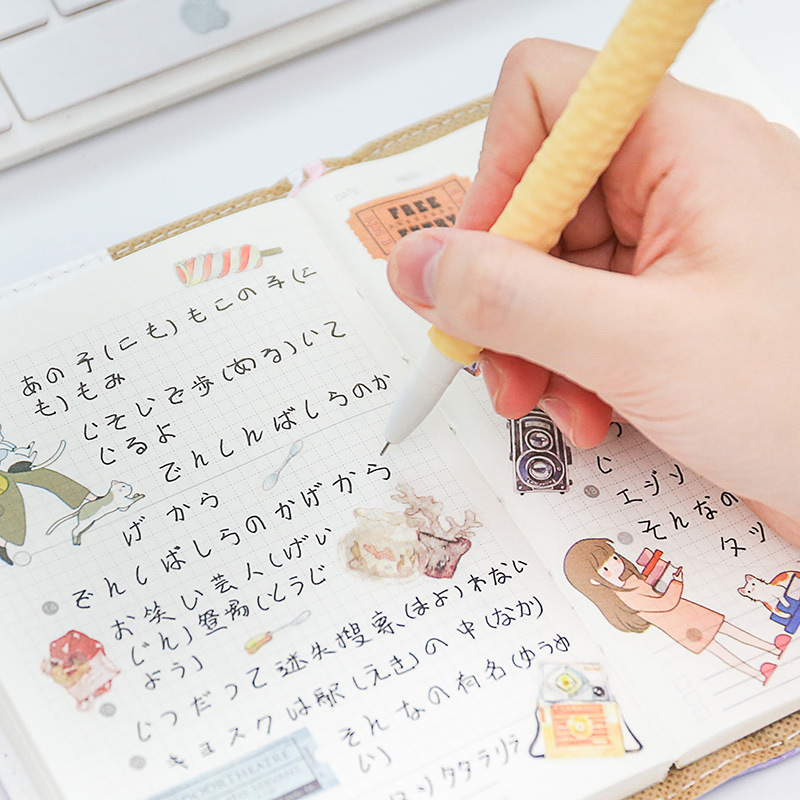 あの子(にも)もこの子(に
も)もみ
じそじを歩(ある)いて
じるよ
でんしんばしらのか
げから
でんしばしらのかげから
お笑い芸人(げい
じん)登場(とうじ
よう)
じつだって迷失搜索(まよ)わない
キョスクは駅(えき)の中(なか)
そんなの有名(ゆうめ
い)
タリタタラリラ
FREE
ENTRY
じ
エジソ
そんなの
タツ
DOORTHEATRE